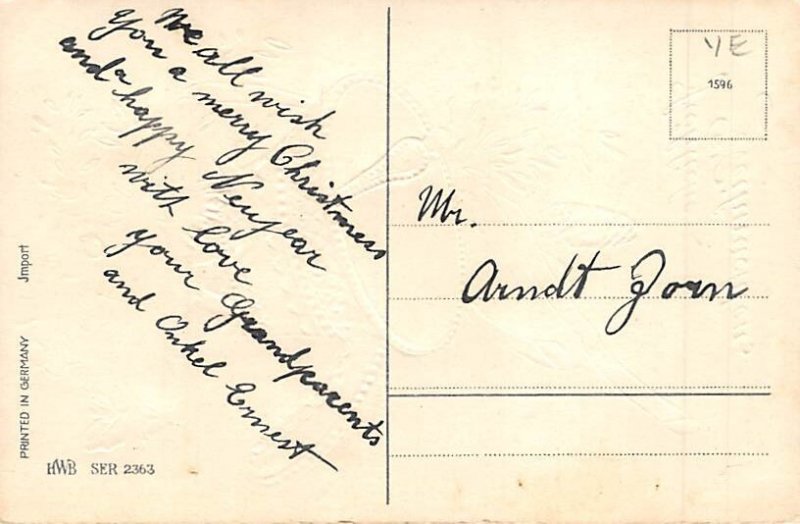 We all wish
You a merry Christmess
and a happy Neujear
with love
your Grandparents
and Onkel Ernest
YE
1596
Mr.
Arndt Jorn
PRINTED IN GERMANY Jmport
HWB SER 2363